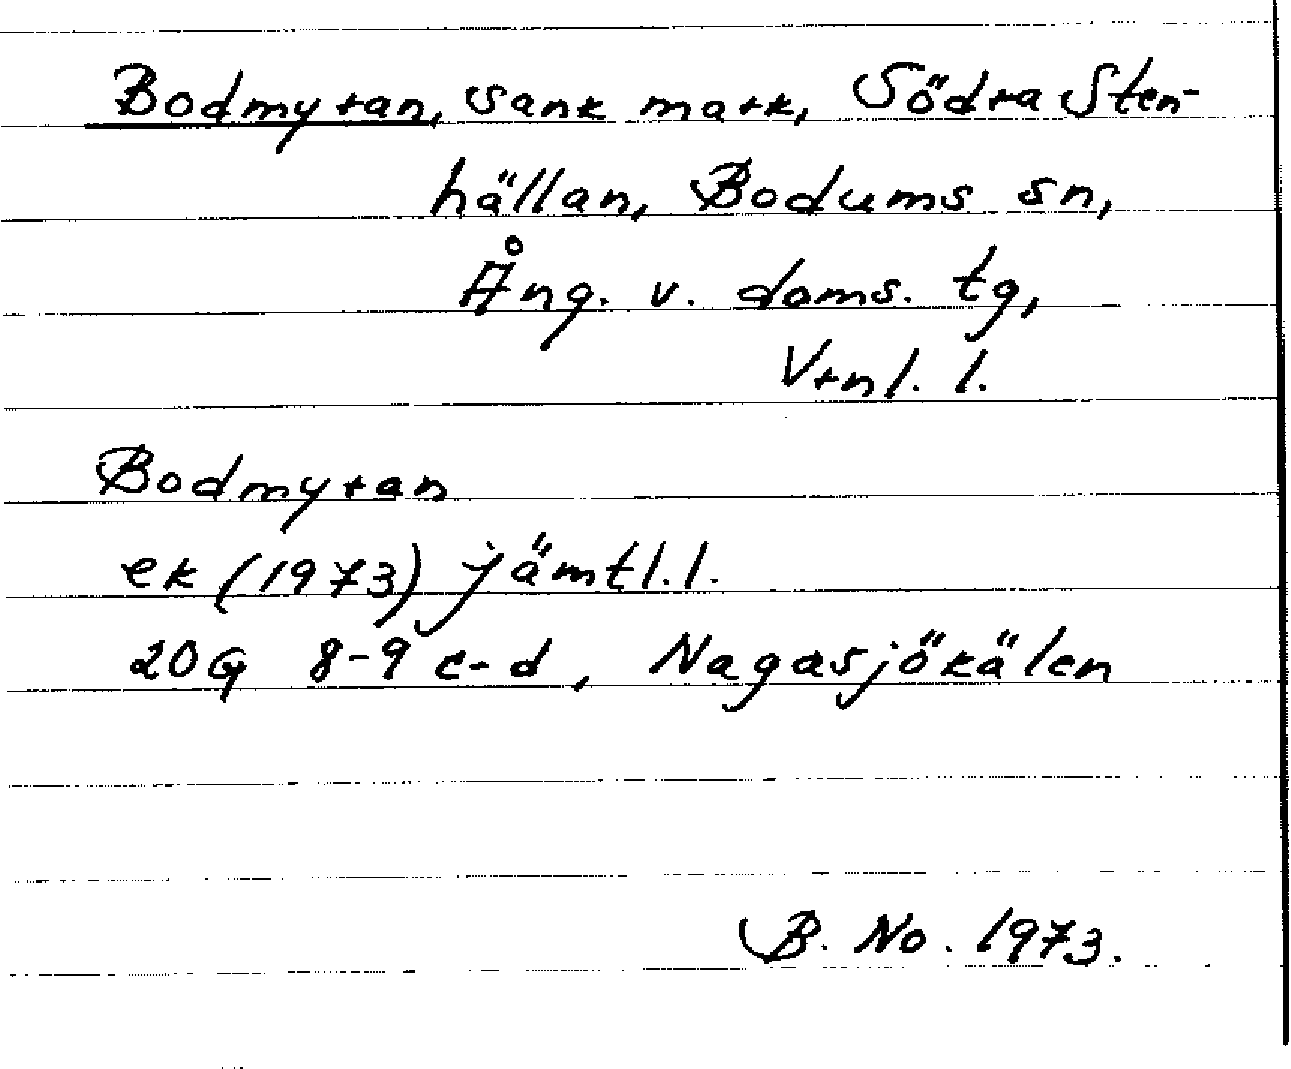 Bodmyran, sank mark, Södra Sten-
hällan, Bodums sn,
Ång. v. doms. tg,
Vrnl. l.
Bodmyran
ek (1973) jämtl. l.
20G 8-9 c-d, Nagasjökälen
B. No. 1973.